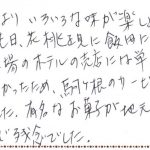 より いろいろな味が楽し
も日、花桃を見に飯田に
場のホテルの売店には単
かったため、駒ヶ根のサービ
た。有名なお菓子が地元
じる残念でした。